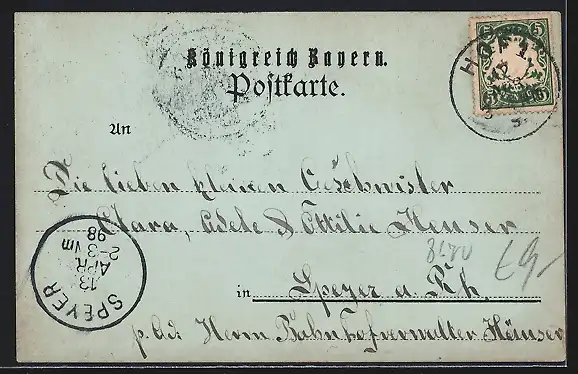 Königreich Bayern.
Postkarte.
An
Die lieben kleinen Geschwister
Clara, Adele & Ottilie Heuser
in Speyer a. Rh.
p. Ad. Herrn Bahnhofverwalter Häuser
5 5
SPEYER
13
APR.
2-3 Nm
98